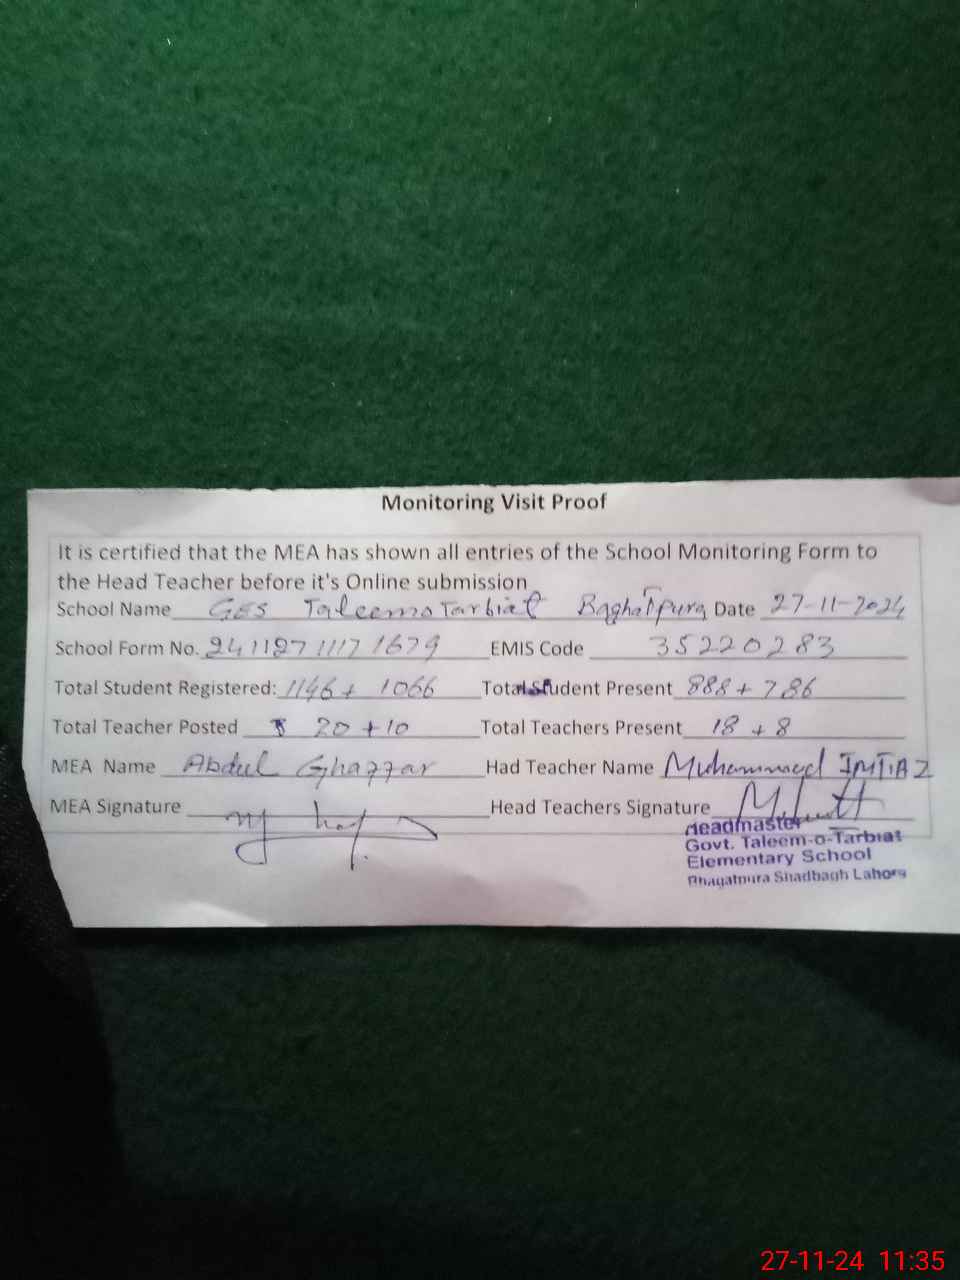 Monitoring Visit Proof
It is certified that the MEA has shown all entries of the School Monitoring Form to
the Head Teacher before it's Online submission
School Name GES Taleemo Tarbiat Baghatpura Date 27-11-2024
School Form No. 2411271117 1679 EMIS Code 35220283
Total Student Registered: 1146 + 1066 Total Student Present 888 + 786
Total Teacher Posted 20 + 10 Total Teachers Present 18 + 8
MEA Name Abdul Ghaffar Had Teacher Name Muhammad IMTIAZ
MEA Signature Head Teachers Signature
Headmaster
Govt. Taleem-o-Tarbiat
Elementary School
Bhagatpura Shadbagh Lahore
27-11-24 11:35